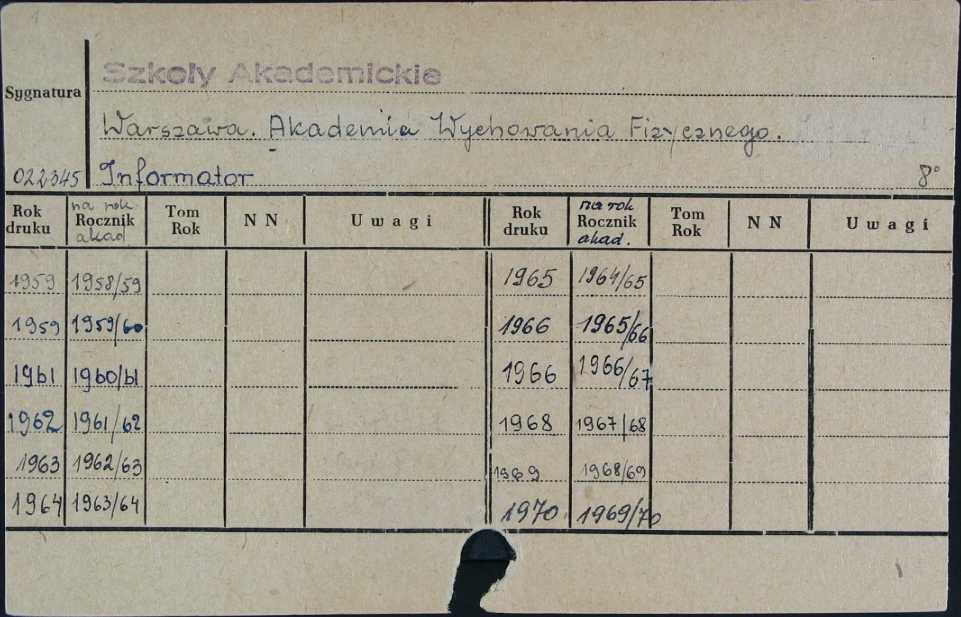 Szkoły Akademickie
Sygnatura
Warszawa. Akademia Wychowania Fizycznego.
022345 Informator 8°
Rok druku na rok Rocznik akad Tom Rok N N Uwagi Rok druku na rok Rocznik akad. Tom Rok N N Uwagi
1959 1958/59 1965 1964/65
1959 1959/60 1966 1965/66
1961 1960/61 1966 1966/67
1962 1961/62 1968 1967/68
1963 1962/63 1969 1968/69
1964 1963/64 1970 1969/70